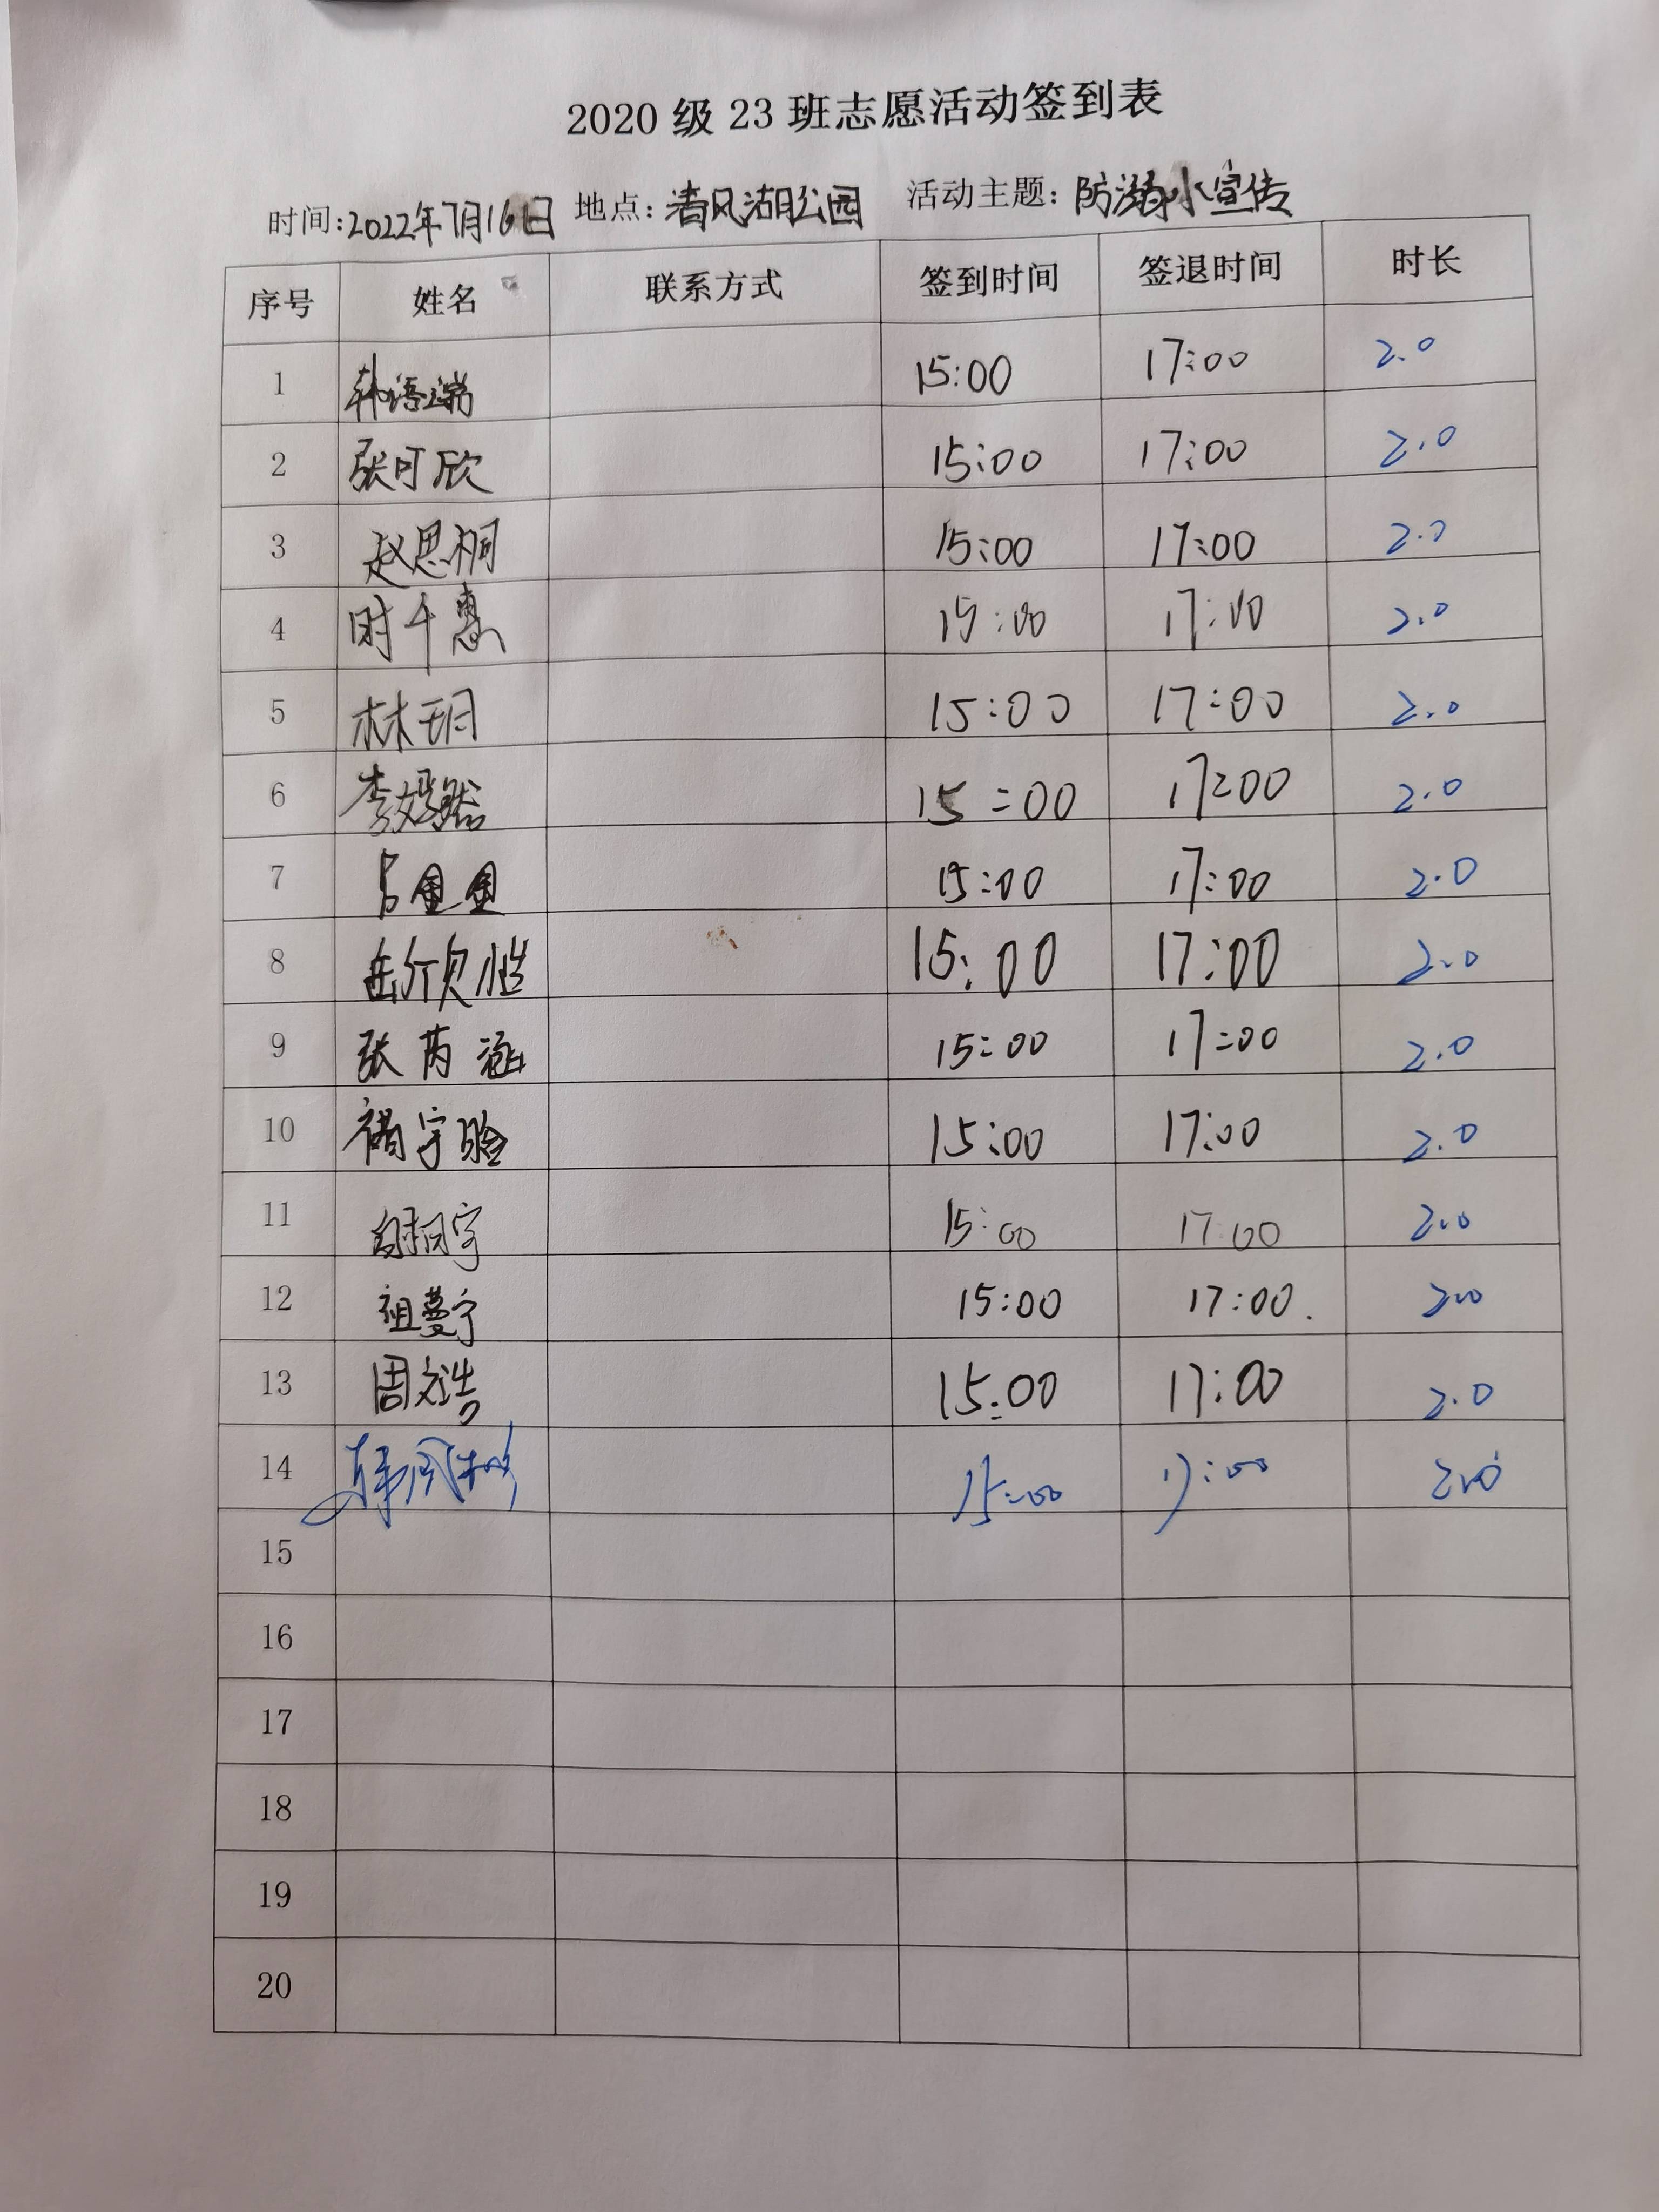 2020 级 23 班志愿活动签到表
时间:2022年7月16日 地点:清风湖公园 活动主题:防溺水宣传
序号 姓名 联系方式 签到时间 签退时间 时长
1 韩语瑞 15:00 17:00 2.0
2 张可欣 15:00 17:00 2.0
3 赵思桐 15:00 17:00 2.0
4 时千惠 15:00 17:00 2.0
5 林玥 15:00 17:00 2.0
6 李嫣然 15:00 17:00 2.0
7 15:00 17:00 2.0
8 岳欣怡 15:00 17:00 2.0
9 张芮涵 15:00 17:00 2.0
10 宇晗 15:00 17:00 2.0
11 15:00 17:00 2.0
12 祖蔓宁 15:00 17:00. 2.0
13 周文浩 15:00 17:00 2.0
14 15:00 17:00 2.0
15
16
17
18
19
20